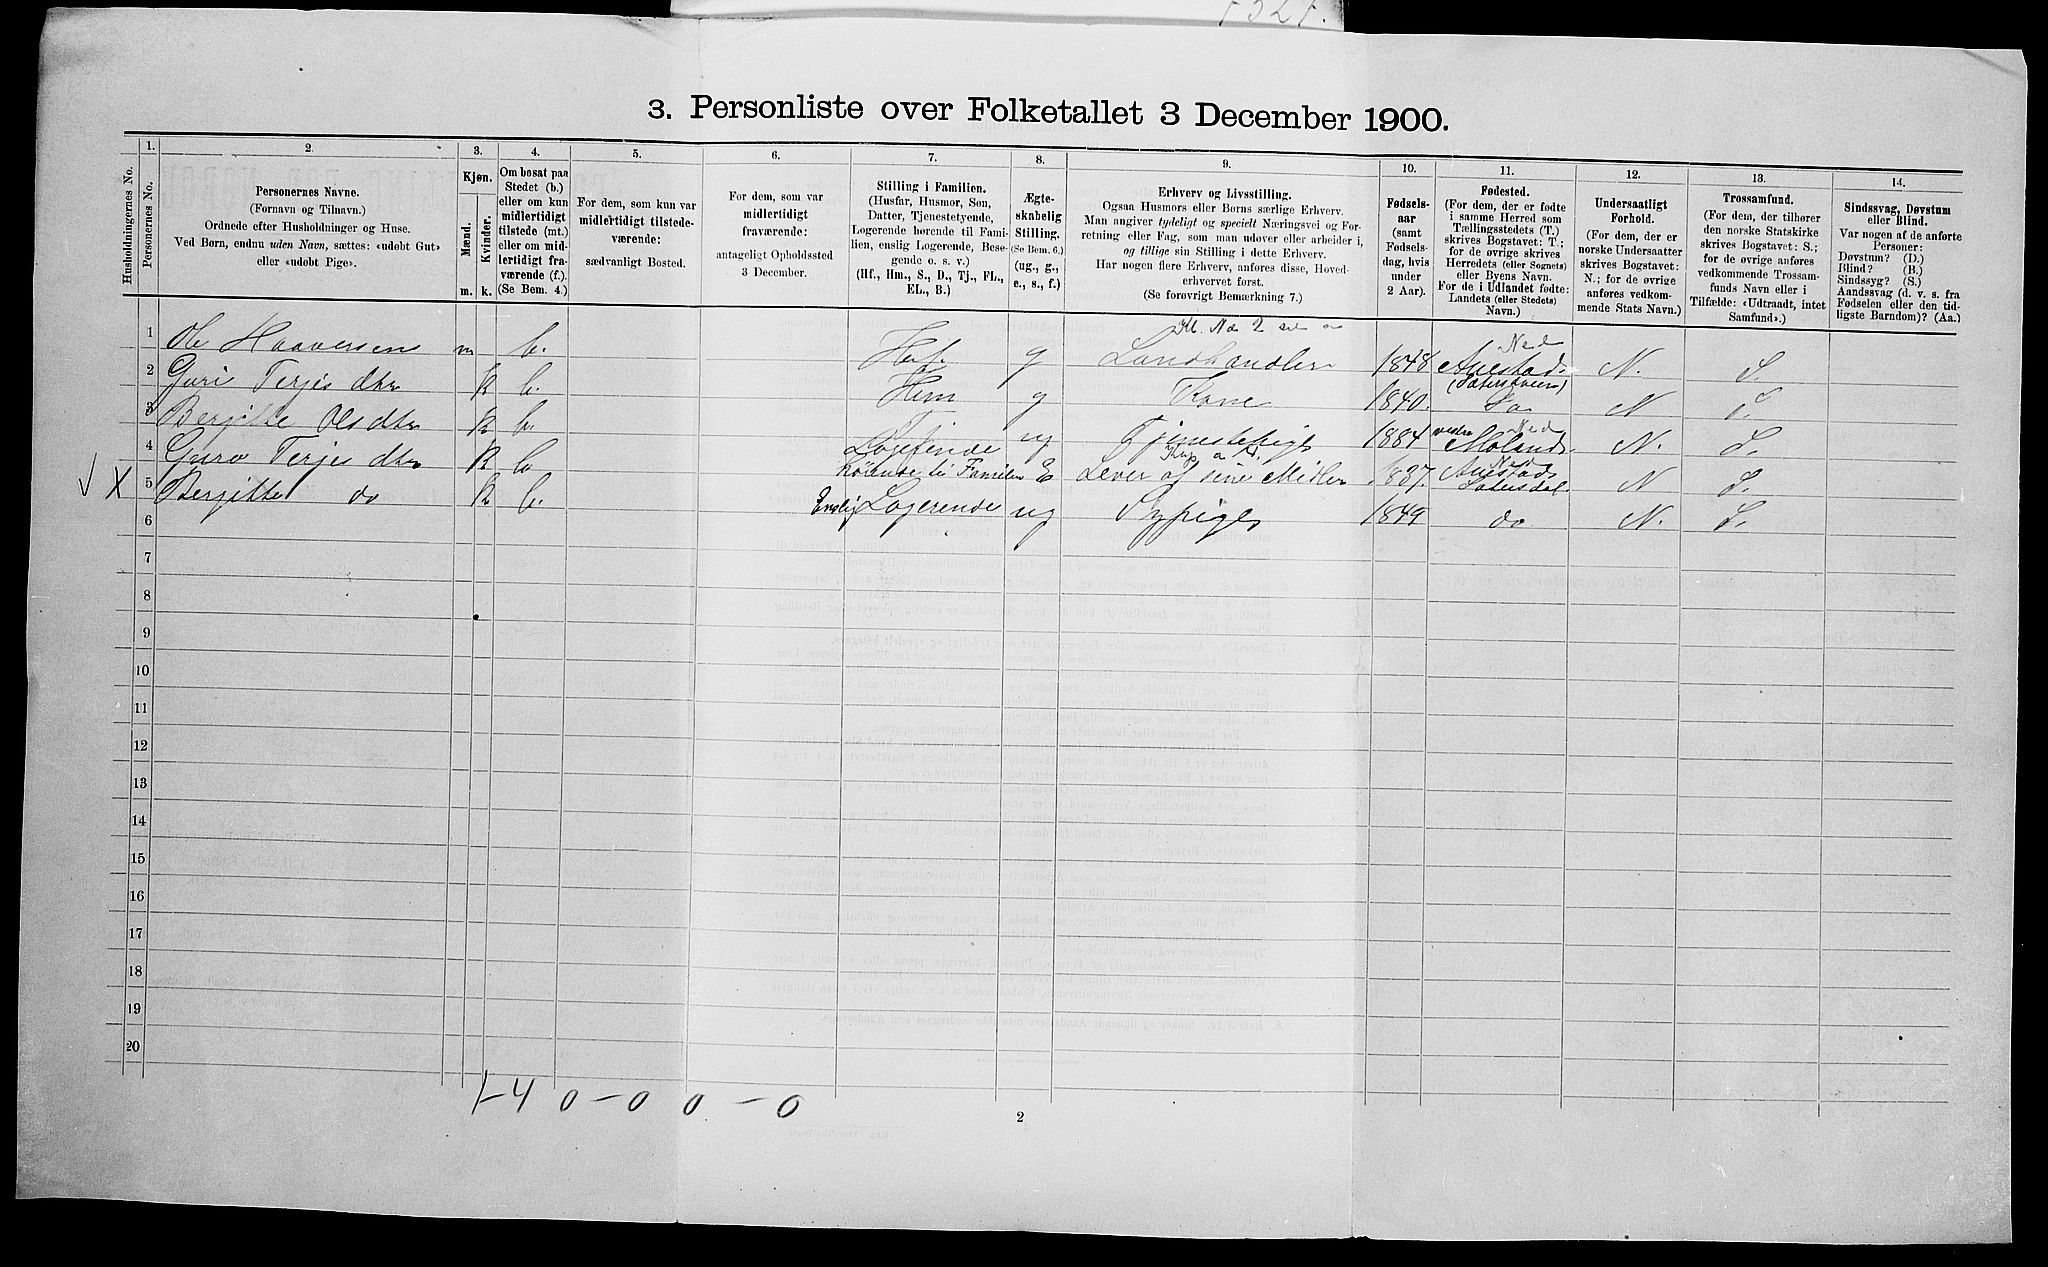 3. Personliste over Folketallet 3 December 1900.
Husholdningernes No.
1.
Personernes No.
2.
Personernes Navne.
(Fornavn og Tilnavn.)
Ordnede efter Husholdninger og Huse.
Ved Børn, endnu uden Navn, sættes: «udøbt Gut»
eller «udøbt Pige».
3.
Kjøn.
Mænd.
Kvinder.
m. k.
4.
Om bosat paa
Stedet (b.)
eller om kun
midlertidigt
tilstede (mt.)
eller om mid-
lertidigt fra-
værende (f.).
(Se Bem. 4.)
5.
For dem, som kun var
midlertidigt tilstede-
værende:
sædvanligt Bosted.
6.
For dem, som var
midlertidigt
fraværende:
antageligt Opholdssted
3 December.
7.
Stilling i Familien.
(Husfar, Husmor, Søn,
Datter, Tjenestetyende,
Logerende hørende til Fami-
lien, enslig Logerende, Besø-
gende o. s. v.)
(Hf., Hm., S., D., Tj., FL.,
EL., B.)
8.
Ægte-
skabelig
Stilling.
(Se Bem. 6.)
(ug., g.,
e., s., f.)
9.
Erhverv og Livsstilling.
Ogsaa Husmors eller Børns særlige Erhverv.
Man angiver tydeligt og specielt Næringsvei og For-
retning eller Fag, som man udøver eller arbeider i,
og tillige sin Stilling i dette Erhverv.
Har nogen flere Erhverv, anføres disse, Hoved-
erhvervet først.
(Se forøvrigt Bemærkning 7.)
10.
Fødsels-
aar
(samt
Fødsels-
dag, hvis
under
2 Aar).
11.
Fødested.
(For dem, der er fødte
i samme Herred som
Tællingsstedets (T.)
skrives Bogstavet: T.;
for de øvrige skrives
Herredets (eller Sognets)
eller Byens Navn.
For de i Udlandet fødte:
Landets (eller Stedets)
Navn.)
12.
Undersaatligt
Forhold.
(For dem, der er
norske Undersaatter
skrives Bogstavet:
N.; for de øvrige
anføres vedkom-
mende Stats Navn.)
13.
Trossamfund.
(For dem, der tilhører
den norske Statskirke
skrives Bogstavet: S.;
for de øvrige anføres
vedkommende Trossam-
funds Navn eller i
Tilfælde: «Udtraadt, intet
Samfund».)
14.
Sindssvag, Døvstum
eller Blind.
Var nogen af de anførte
Personer:
Døvstum? (D.)
Blind? (B.)
Sindssyg? (S.)
Aandssvag (d. v. s. fra
Fødselen eller den tid-
ligste Barndom)? (Aa.)
1 Ole Haaversen m b. Hf. g Landhandler 1848 Ned Auestad (Sætersdalen) N. S.
2 Guri Terjesdtr k b. Hm g Kone 1840. Do N S.
3 Bergitte Olsdtr k b. Tj ug Tjenestepige 1884 Ned Molands N. S.
4 Guro Terjesdtr k b Logerende hörende til Familien E Kap a Lever af sine Midler 1837. Ned Auestads Sætersdal N S.
X 5 Bergitte do k b. Enslig Logerende ug Sypige 1849 do N. S.
6
7
8
9
10
11
12
13
14
15
16
17
18
19
20
1-4 0-0 0-0
2